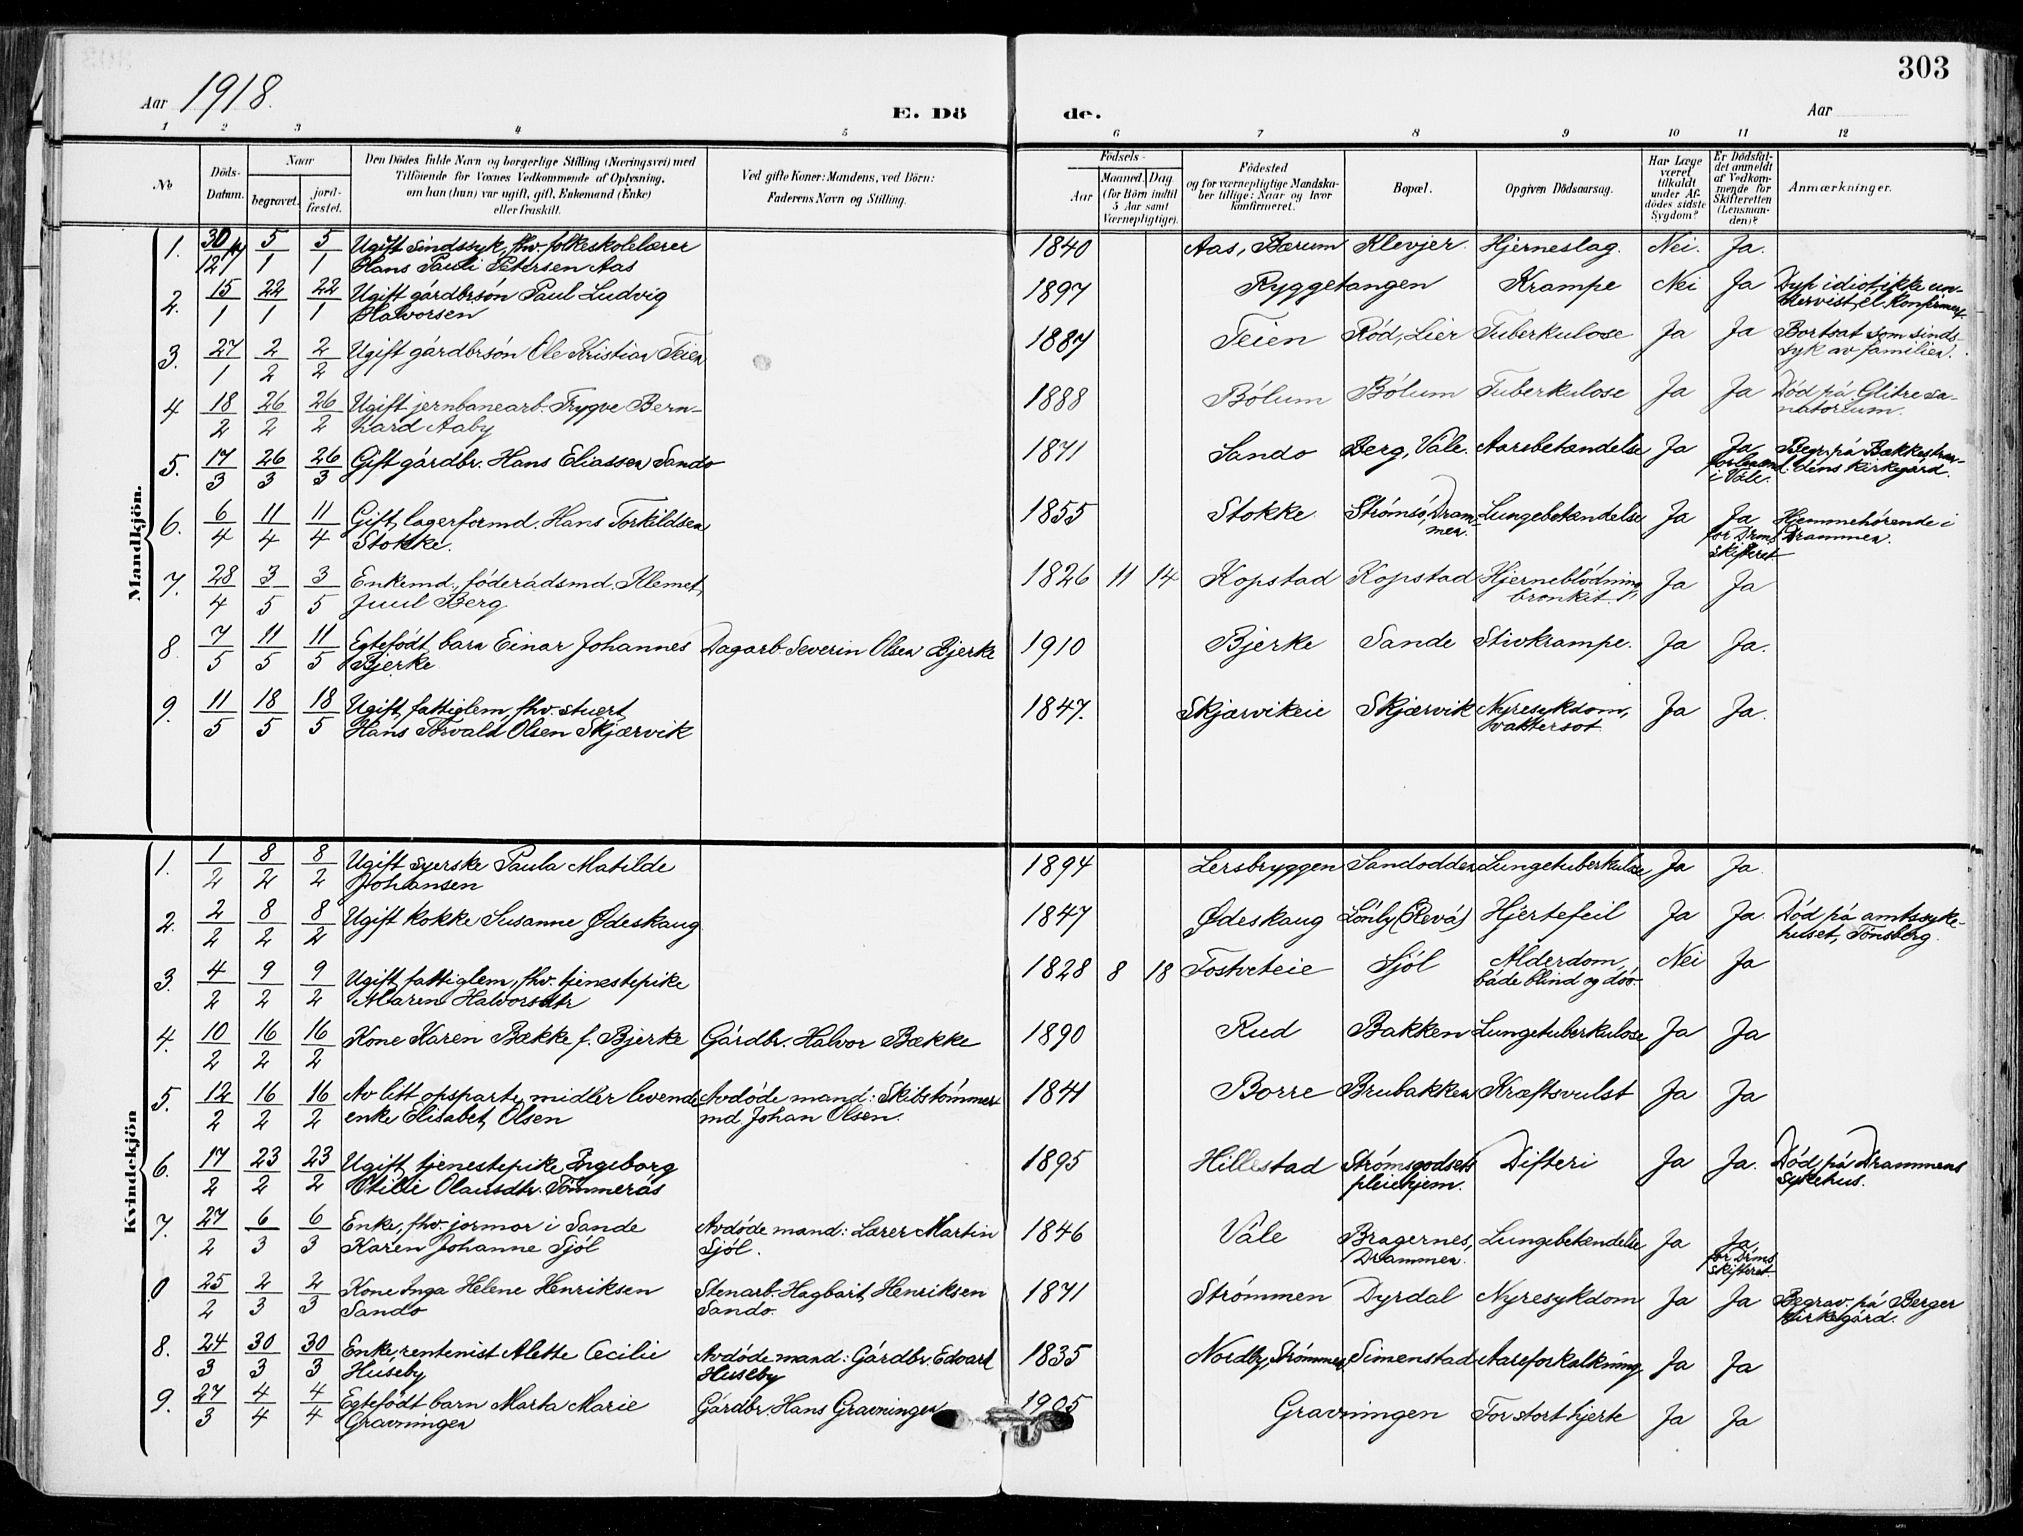 303
Aar 1918.
E. Dö de.
Aar
1 2 3 4 5 6 7 8 9 10 11 12
No
Döds-Datum.
Naar begravet. jord-fæstet.
Den Dödes fulde Navn og borgerlige Stilling (Næringsvei) med
Tilföiende for Voxnes Vedkommende af Oplysning,
om han (hun) var ugift, gift, Enkemand (Enke)
eller fraskilt.
Ved gifte Koner: Mandens, ved Börn:
Faderens Navn og Stilling.
Födsels-
Aar Maaned. Dag. (for Börn indtil 5 Aar samt Værnepligtige).
Födested
og for værnepligtige Mandska-
ber tillige: Naar og hvor
konfirmeret.
Bopæl.
Opgiven Dödsaarsag.
Har Læge været tilkaldt under Af-dödes sidste Sygdom?
Er Dödsfal-det anmeldt af Vedkom-mende for Skifteretten (Lensman-den)?
Anmærkninger.
Mandkjön.
1. 30/12 17 5/1 5/1 Ugift sindssyk, fhv. folkeskolelærer 1840 Aas, Bærum Klevjer. Hjerneslag. Nei. Ja.
Hans Pauli Petersen Aas
2. 15/1 22/1 22/1 Ugift gårdbrsøn Paul Ludvig 1897 Ryggetangen Krampe Nei Ja Dyp idiot, ikke un-
Halvorsen dervist el. konfirmert.
3. 27/1 2/2 2/2 Ugift gårdbrsøn Ole Kristian Teien 1887 Teien Rød, Lier Tuberkulose Ja Ja Bortsat som sinds-
syk av familien.
4 18/2 26/2 26/2 Ugift jernbanearb. Trygve Bern- 1888 Bólum Bólum Tuberkulose Ja Ja Död på Glitre sa-
hard Aaby natorium.
5. 17/3 26/3 26/3 Gift gårdbr. Hans Eliassen Sando 1871 Sando Berg, Våle. Aarebetændelse Ja Ja Begr. på Bækkestran-
for lensmd. i Våle. dens kirkegård.
6. 6/4 11/4 11/4 Gift, lagerformd. Hans Torkildsen 1855 Stokke Strømsø, Dram- Lungebetændelse Ja Ja Hjemmehørende i
Stokke. men. for Drms. skifteret Drammen.
7. 28/4 3/5 3/5 Enkemd., föderådsmd. Klemet 1826 11 14 Kopstad Kopstad Hjerneblödning, Ja Ja
Juul Berg bronkit.
8. 7/5 11/5 11/5 Egtefödt barn Einar Johannes Dagarb. Severin Olsen Bjerke 1910 Bjerke Sande Stivkrampe. Ja Ja.
Bjerke
9. 11/5 18/5 18/5 Ugift, fattiglem, fhv. stuert 1847. Skjærvikeie Skjærvik Nyresykdom, Ja Ja.
Hans Torvald Olsen Skjærvik vattersot.
Kvindekjön
1. 1/2 8/2 8/2 Ugift syerske Paula Matilde 1894 Lersbryggen Sandodden Lungetuberkulose Ja Ja.
Johansen
2. 2/2 8/2 8/2 Ugift kokke Susanne Ødeskaug 1847 Ødeskaug Lónly (Revå) Hjertefeil Ja Ja. Död på amtssyke-
huset, Tönsberg.
3. 4/2 9/2 9/2 Ugift, fattiglem, fhv. tjenestepike 1828 8 18 Tostveteie Sjöl Alderdom, Nei Ja
Maren Halvorsdtr både blind og döv.
4. 10/2 16/2 16/2 Kone Karen Bække f. Bjerke Gårdbr. Halvor Bække 1890 Rud Bakken Lungetuberkulose Ja Ja
5. 12/2 16/2 16/2 Av litt opsparte midler levende Avdöde mand: Skibstömmer- 1841 Borre Brubakken Kræftsvulst Ja Ja
enke Elisabet Olsen md. Johan Olsen.
6. 17/2 23/2 23/2 Ugift, tjenestepike Ingeborg 1895 Hillestad Strömsgodsets Difteri Ja Ja. Död på Drammens
Otilie Olausdtr. Tömmerås pleiehjem. sykehus.
7. 27/2 6/3 6/3 Enke, fhv. jormor i Sande Avdöde mand: Lærer Martin 1846 Våle Bragernes, Lungebetændelse Ja Ja
Karen Johanne Sjöl Sjöl. Drammen. for Drms. skifteret.
0 25/2 2/3 2/3 Kone Inga Helene Henriksen Stenarb. Hagbart Henriksen 1871 Strömmen Dyrdal Nyresykdom Ja Ja Begrav. på Berger
Sando Sando. kirkegård.
8. 24/3 30/3 30/3 Enke, rentenist Alette Cecilie Avdöde mand: Gårdbr. Edvart 1835 Nordby, Strömmen Simenstad Aareforkalkning Ja Ja
Huseby Huseby
9. 27/3 4/4 4/4 Egtefödt barn Marta Marie Gårdbr. Hans Gravningen 1905 Gravningen For stort hjerte Ja Ja
Gravningen